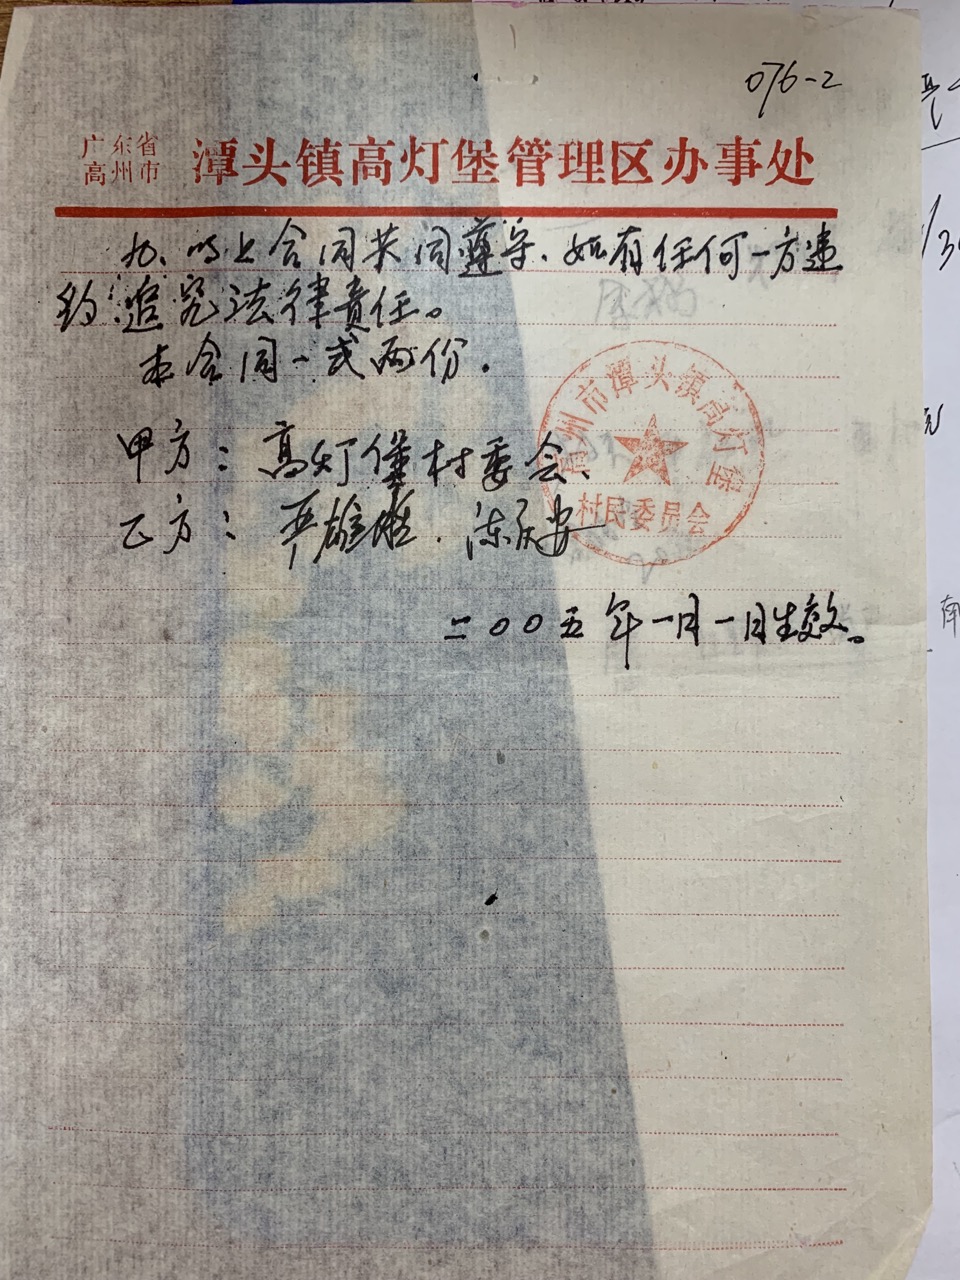 076-2
广东省
高州市
潭头镇高灯堡管理区办事处
九、以上合同共同遵守.如有任何一方违
约追究法律责任。
本合同一式两份.
甲方:高灯堡村委会.
乙方:严雄 . 陈庆安
高州市潭头镇高灯堡
村民委员会
二00五年一月一日生效。